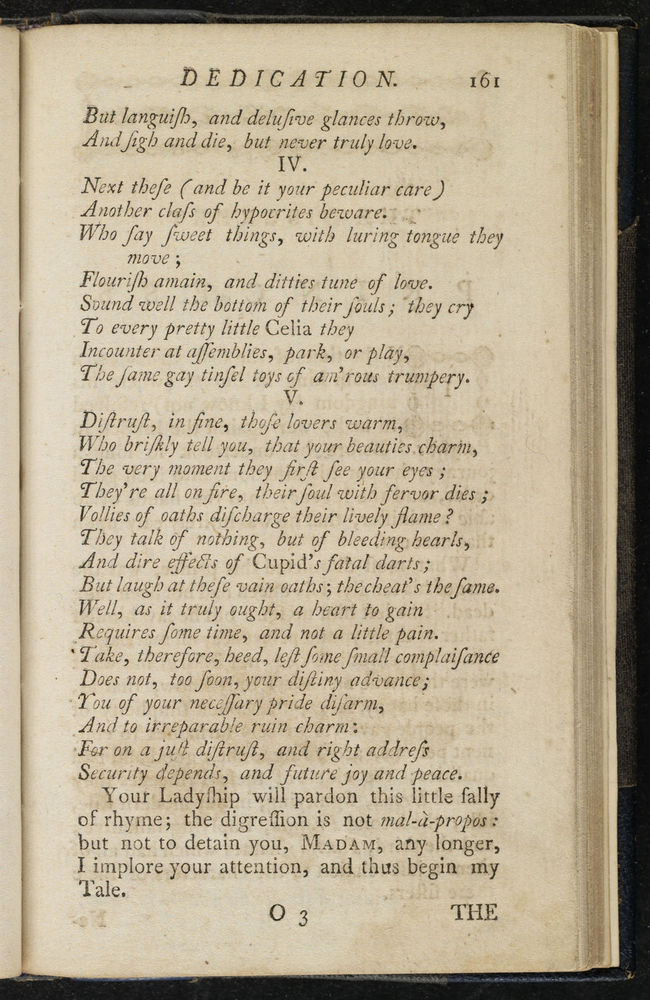 DEDICATION. 161
But languiſh, and deluſive glances throw,
And ſigh and die, but never truly love.
IV.
Next theſe (and be it your peculiar care)
Another claſs of hypocrites beware.
Who ſay ſweet things, with luring tongue they
move;
Flouriſh amain, and ditties tune of love.
Sound well the bottom of their ſouls; they cry
To every pretty little Celia they
Incounter at aſſemblies, park, or play,
The ſame gay tinſel toys of am'rous trumpery.
V.
Diſtruſt, in fine, thoſe lovers warm,
Who briſkly tell you, that your beauties charm,
The very moment they firſt ſee your eyes;
They're all on fire, their ſoul with fervor dies;
Vollies of oaths diſcharge their lively flame?
They talk of nothing, but of bleeding hearls,
And dire effects of Cupid's fatal darts;
But laugh at theſe vain oaths; the cheat's the ſame.
Well, as it truly ought, a heart to gain
Requires ſome time, and not a little pain.
Take, therefore, heed, leſt ſome ſmall complaiſance
Does not, too ſoon, your diſtiny advance;
You of your neceſſary pride diſarm,
And to irreparable ruin charm:
For on a juſt diſtruſt, and right addreſs
Security depends, and future joy and peace.
Your Ladyſhip will pardon this little ſally
of rhyme; the digreſſion is not mal-à-propos:
but not to detain you, MADAM, any longer,
I implore your attention, and thus begin my
Tale.
O 3 THE